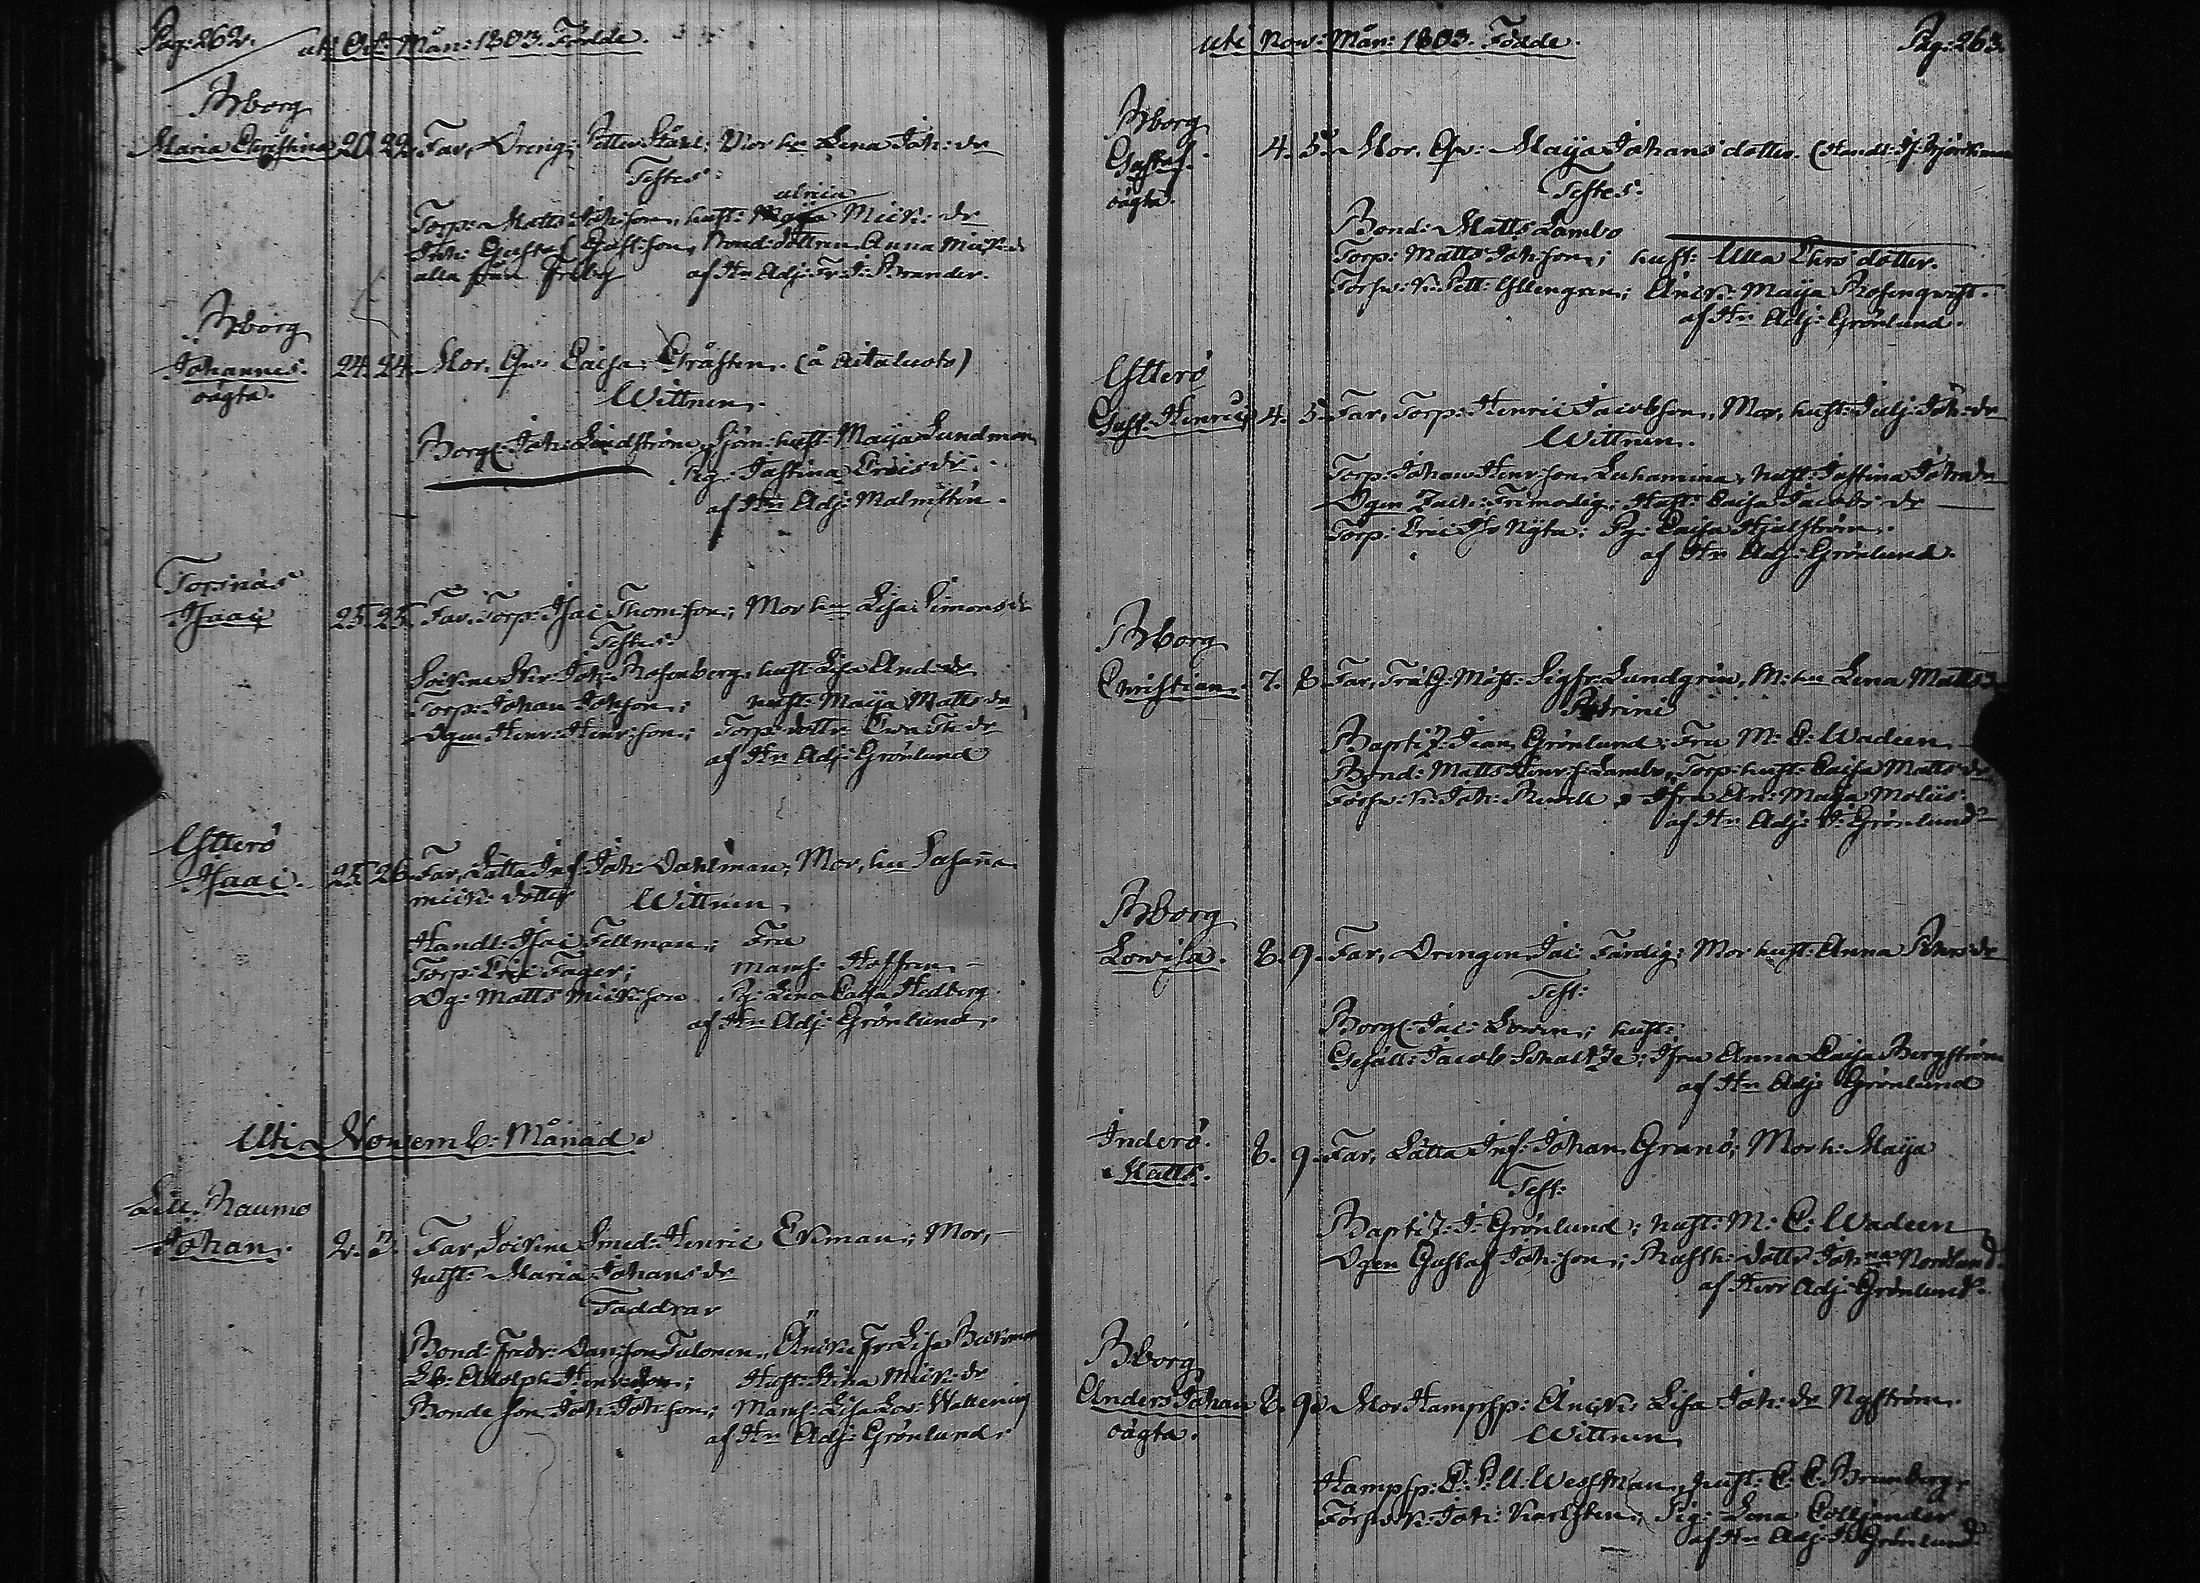 Pag: 262.
uti Oct: Mån: 1803. Födde.
Bborg
Maria Christina 20. 22. Far, Dreng: Petter Ståhl: Mor hu Lena Joh: dr
Testes:
ulrica
Torp: Matts Johsson, hust: Maja Mick: dr
Inh: Gustaf Gustsson, Bond: dottren Anna Mick: d
alla från Friby af Hr Adj: Fr: J: Brander.
Bborg
Johannes. 24. 24. Mor. Qv: Caisa Gråsten. (å Aitaluoto)
oägta.
Wittnen.
Borg: Joh: Lindström, Sjöm: hust: Maja Lundman
Pig: Justina Ericsdr.
af Hr Adj: Malmsten.
Torsnäs
Isaac 25. 25. Far. Torp: Isac Thomsson; Mor hu Lisa Simonsdr
Testes:
Sockne Skr: Joh: Rosenberg, hust: Lisa And: dr
Torp: Johan Johsson; hust: Maija Matts dr
Dgen Henr: Henr:son; Torp: dottr: Ewa Th: dr
af Hr Adj: Grönlund
Ytterö
Isaac. 25. 26. Far, Lätta Inf: Joh: Dahlman; Mor, hu Susanna
mick: dotter Wittnen.
Handl: Isac Fellman; Fru
Torp: Eric Fager; Mams: Hoffren
Dg: Matts Mickson Pg: Lena Caisa Hedberg.
af Hr Adj: Grönlund.
Uti Novemb: Månad.
Lill Raumo
Johan. 2. 3. Far, Sockne Smed: Henric Ekman; Mor,
hust: Maria Johansdr
Faddrar
Bond: Fredr: Danison Tulonen,
Sk: Adolph Hust: Stina Mick: dr
Bonde son Joh: Johsson; Mams: Lisa Lov: Wallenius
af Hr Adj: Grönlund.
uti Nov: Mån: 1803. Födde.
Pag: 263.
Bborg
Gustaf. 4. 5. Mor. Qv: Maija Johans dotter. (Handl: Björkman
oägta.
Testes:
Bond: Matts Lambo
Torp: Matts Johsson; hust: Ulla Ehrs dotter.
Försv: K: Pett: Yllengren; Änk: Maija Rosenqvist.
af Hr Adj: Grönlund.
Ytterö
Gust: Henric 4. 5. Far, Torp: Henric Jacobsson, Mor, hust: Julj: Joh: dr
Wittnen.
Torp: Johan Henrson Luhamina, hust: Justina Johndr
Dgen Zach: Fremodig; Hust: Caisa Jacobsdr
Torp: Eric Nyta; Pg: Caisa Hjelström.
af Hr Adj: Grönlund.
Bborg
Christian. 7. 8. Far, Träg: Mäst: Sigfr: Lundgrén, M: hu Lena Matts
Patrini
Baptiz: Jean Grönlund; Fru M: C: Wadeen
Bond: Matts Henrs: Lambo, Torp: hust: Caisa Mattsdr
Försv: K: Joh: Revell; Jfru An: Maja Moliis
af Hr Adj: J: Grönlund
Bborg
Lovisa. 8. 9. Far, Drengen Jac: Färdig; Mor hust: Anna
Test:
Borg: Jac: Lovén; hust:
Gesäll: Jacob Schultze; Jfru Anna Caisa Bergström
af Hr Adj: Grönlund
Inderö.
Matts. 8. 9. Far, Lätta Inf: Johan Granö; Mor h: Maija
Test:
Baptiz: J: Grönlund; hust: M: C: Wadeen
Dgen Gustaf Johsson; Rusth: dottr Joh:na Nordlund.
af Herr Adj: Grönlund.
Bborg
Anders Johan 8. 9. Mor Hampsp: Änk: Lisa Joh: dr Nyström.
oägta.
Wittnen
Hampsp: C: P: U: Westman, hust: C: C: Brunberg.
Försv: K: Joh: Karlsten; Pig: Lena Colliander
af Hr Adj: H: Grönlund.